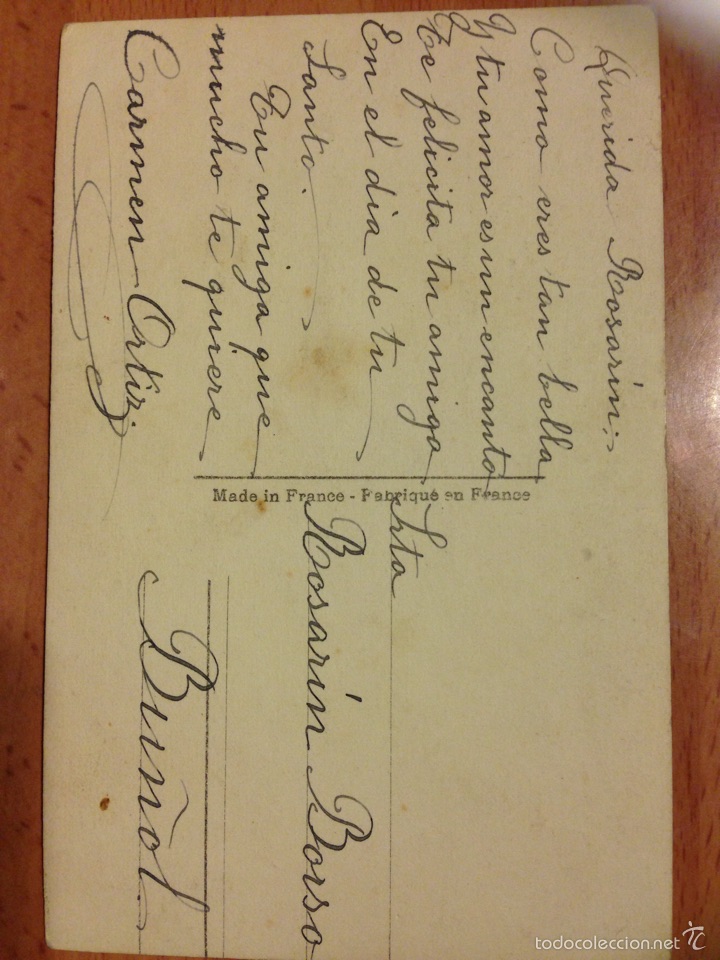 Querida Rosarin:
Como eres tan bella
Y tu amor es un encanto
Te felicita tu amiga
En el dia de tu
Santo.
Tu amiga que
mucho te quiere
Carmen Ortiz.
Made in France - Fabriqué en France
Srta
Rosarín Borso
Buñol.
todocoleccion.net